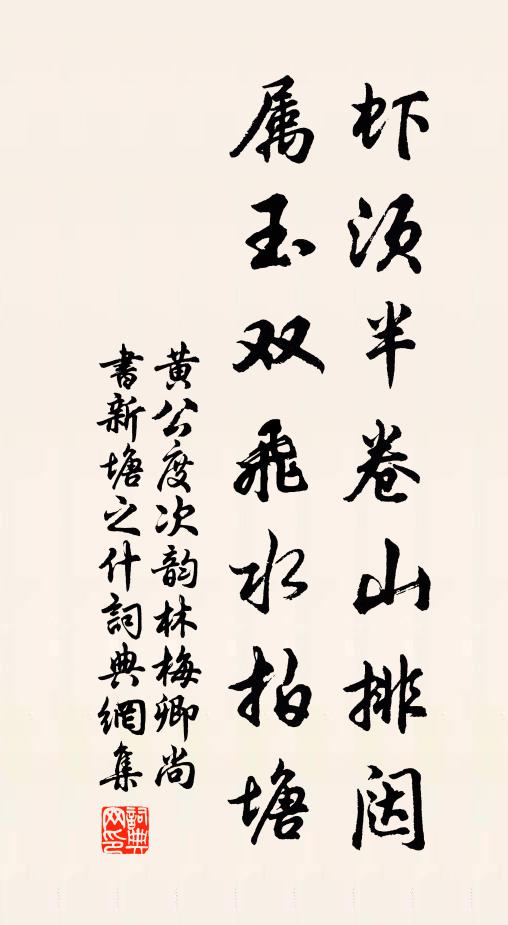 虾须半卷山排闼
属玉双飞水拍塘
黄公度次韵林梅卿尚
書新塘之什詞典網集
詞典網印